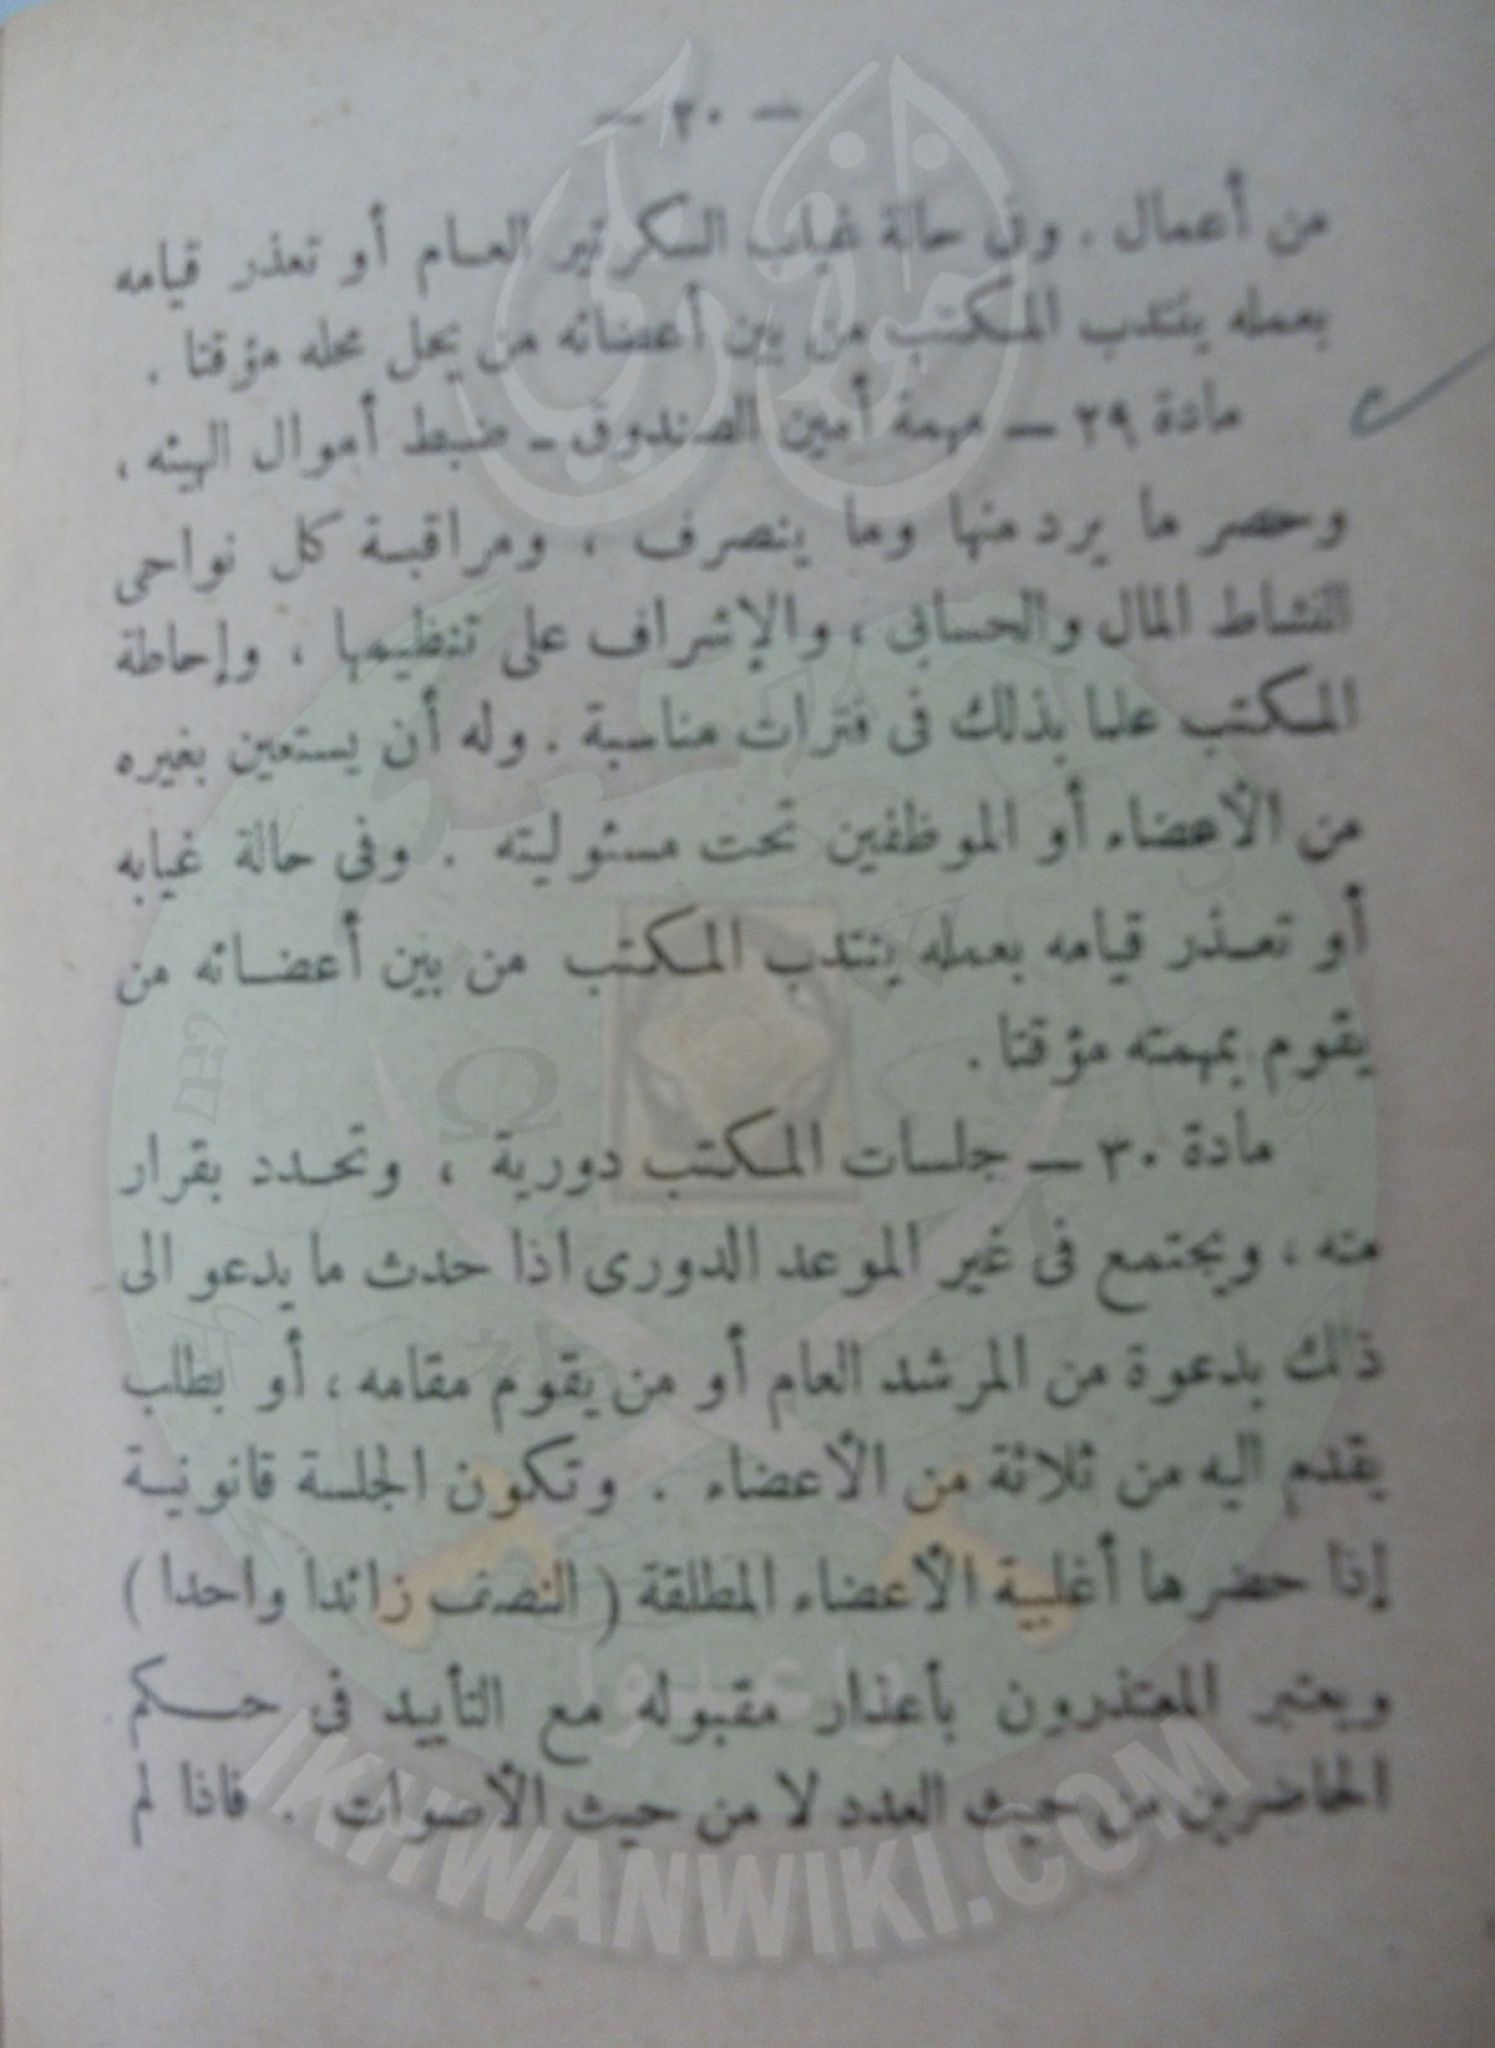 — ٢٠ —
من أعمال . وفى حالة غياب السكرتير العام أو تعذر قيامه
بعمله ينتدب المكتب من بين أعضائه من يحل محله مؤقتا .
مادة ٢٩ — مهمة أمين الصندوق - ضبط أموال الهيئه ،
وحصر ما يرد منها وما ينصرف ، ومراقبة كل نواحى
النشاط المالى والحسابى ، والإشراف على تنظيمها ، وإحاطة
المكتب علما بذلك فى فترات مناسبة . وله أن يستعين بغيره
من الأعضاء أو الموظفين تحت مسئوليته . وفى حالة غيابه
أو تعذر قيامه بعمله ينتدب المكتب من بين أعضائه من
يقوم بمهمته مؤقتا .
مادة ٣٠ — جلسات المكتب دورية ، وتحدد بقرار
منه ، ويجتمع فى غير الموعد الدورى اذا حدث ما يدعو الى
ذلك بدعوة من المرشد العام أو من يقوم مقامه ، أو بطلب
يقدم اليه من ثلاثة من الأعضاء . وتكون الجلسة قانونية
إذا حضرها أغلبية الأعضاء المطلقة ( النصف زائدا واحدا )
ويعتبر المعتذرون بأعذار مقبوله مع التأييد فى حكم
الحاضرين من حيث العدد لا من حيث الأصوات . فاذا لم
وأعدوا
IKHWANWIKI.COM